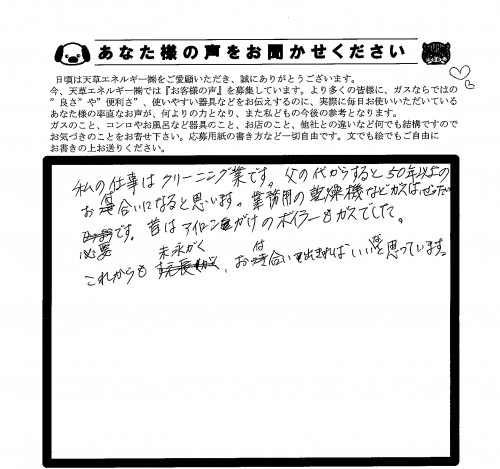 あなた様の声をお聞かせください
日頃は天草エネルギー㈱をご愛顧いただき、誠にありがとうございます。
今、天草エネルギー㈱では『お客様の声』を募集しています。より多くの皆様に、ガスならではの
"良さ"や"便利さ"、使いやすい器具などをお伝えするのに、実際に毎日お使いいただいている
あなた様の率直なお声が、何よりの力となり、また私どもの今後の参考となります。
ガスのこと、コンロやお風呂など器具のこと、お店のこと、他社との違いなど何でも結構ですので
お気づきのことをお寄せ下さい。応募用紙の書き方など一切自由です。文でも絵でもご自由に
お書きの上お送りください。
私の仕事はクリーニング業です。父の代からすると50年以上の
お付合いになると思います。業務用の乾燥機などガスはぜったい
必要です。昔はアイロンがけのボイラーもガスでした。
これからも末永がく、お付合い出きればいいと思っています。